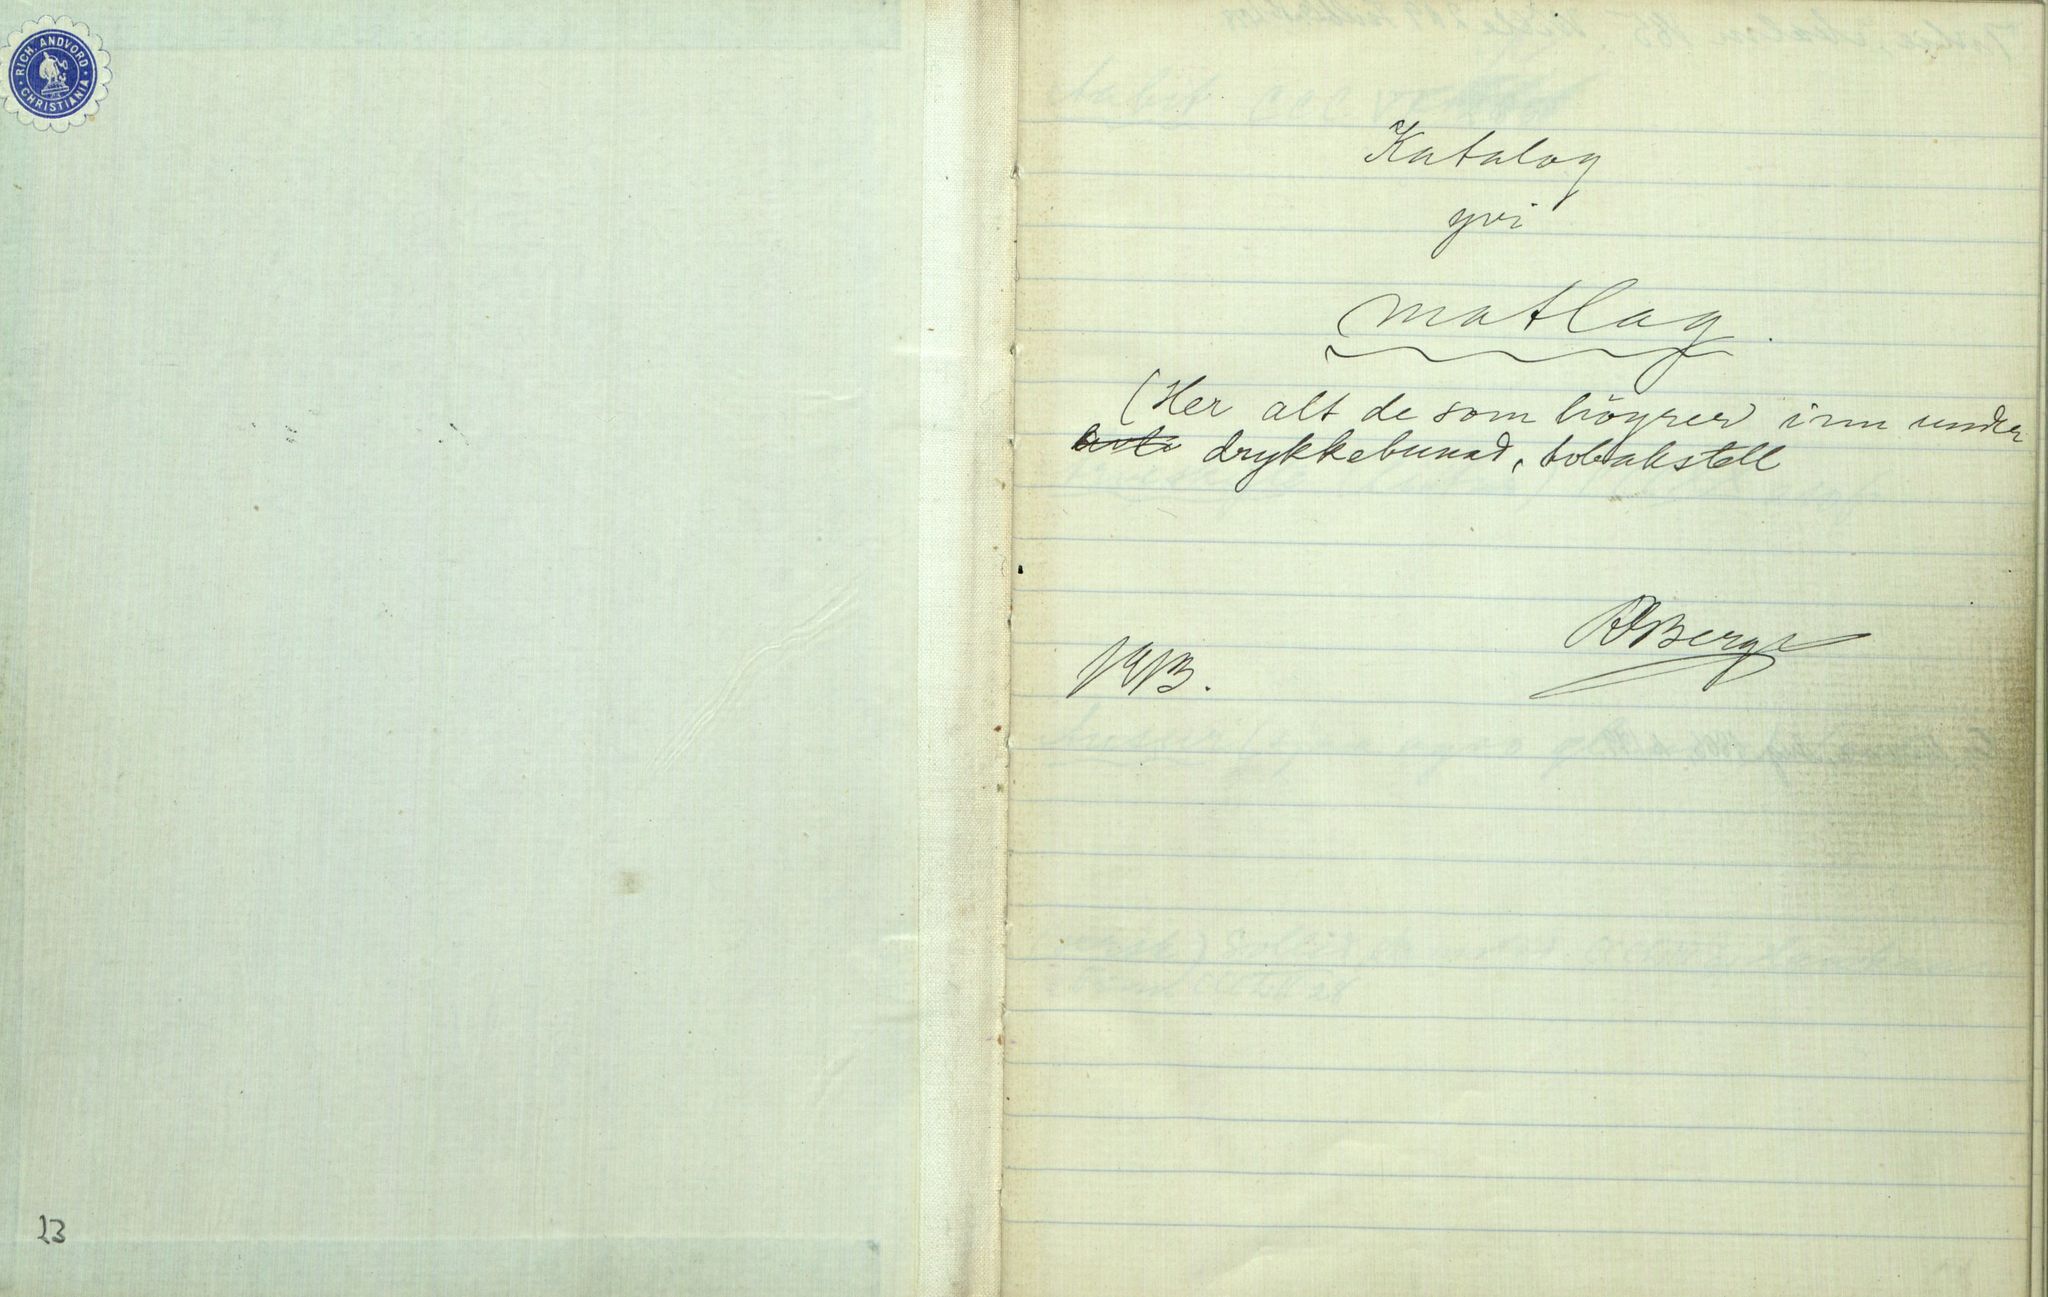 RICH. ANDVORD
CHRISTIANIA
23
Katalog
yvi
matlag
(Her alt de som höyrer inn under
drykkebunad, tobakstell
RBerge